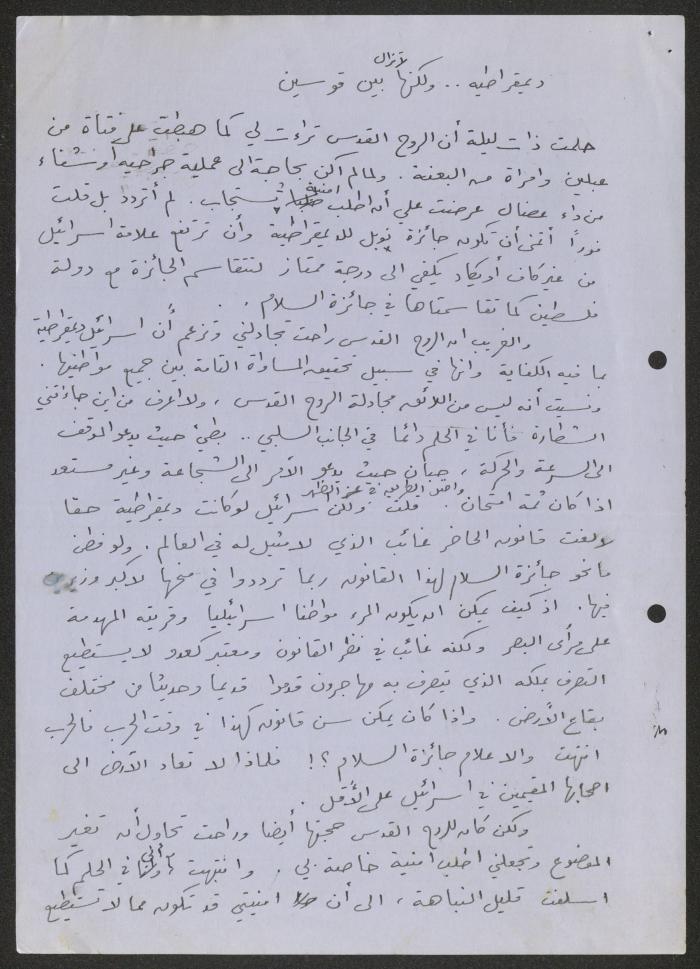 ديمقراطيه .. ولكنها لاتزال بين قوسين
حلمت ذات ليلة أن الروح القدس تراءت لي كما هبطت على فتاة من
عبلين وامرأة من البعنة . ولما لم اكن بحاجة الى عملية جراحيه أو شفاء
من داء عضال عرضت علي أن اطلب امنية تستجاب . لم أتردد بل قلت
فوراً أتمنى أن تكون جائزة نوبل للديمقراطية وأن ترتفع علامة اسرائيل
من غير كاف أو يكاد يكفي الى درجة ممتاز لتتقاسم الجائزة مع دولة
فلسطين كما تقاسمتاها في جائزة السلام .
والغريب ان الروح القدس راحت تجادلني وتزعم أن اسرائيل ديمقراطية
بما فيه الكفاية وانها في سبيل تحقيق المساواة التامة بين جميع مواطنيها .
ونسيت أنه ليس من اللائق مجادلة الروح القدس ، ولا اعرف من اين جاءتني
الشطارة فأنا في الحلم دائما في الجانب السلبي .. بطيء حيث يدعو الموقف
الى السرعة والحركة ، جبان حيث يدعو الأمر الى الشجاعة وغير مستعد
اذا كان ثمة امتحان واضل الطريق في عز النهار . قلت ولكن اسرائيل لو كانت ديمقراطية حقا
لألغت قانون الحاضر غائب الذي لا مثيل له في العالم . ولو فطن
مانحو جائزة السلام لهذا القانون ربما ترددوا في منحها لأكبر وزير
فيها . اذ كيف يمكن ان يكون المرء مواطنا اسرائيليا وقريته المهدمة
على مرأى البصر ولكنه غائب في نظر القانون ومعتبر كعدو لا يستطيع
التصرف بملكه الذي يتصرف به مهاجرون قدموا قديما وحديثا من مختلف
بقاع الأرض . واذا كان يمكن سن قانون كهذا في وقت الحرب فالحرب
انتهت والا علام جائزة السلام ؟! فلماذا لا تعاد الأرض الى
اصحابها المقيمين في اسرائيل على الأقل .
ولكن كان للروح القدس حجتها أيضا وراحت تحاول أن تغير
الموضوع وتجعلني اطلب امنية خاصة بي . وانتبهت وأنا في الحلم كما
اسلفت قليل النباهة ، الى أن امنيتي قد تكون مما لا تستطيع